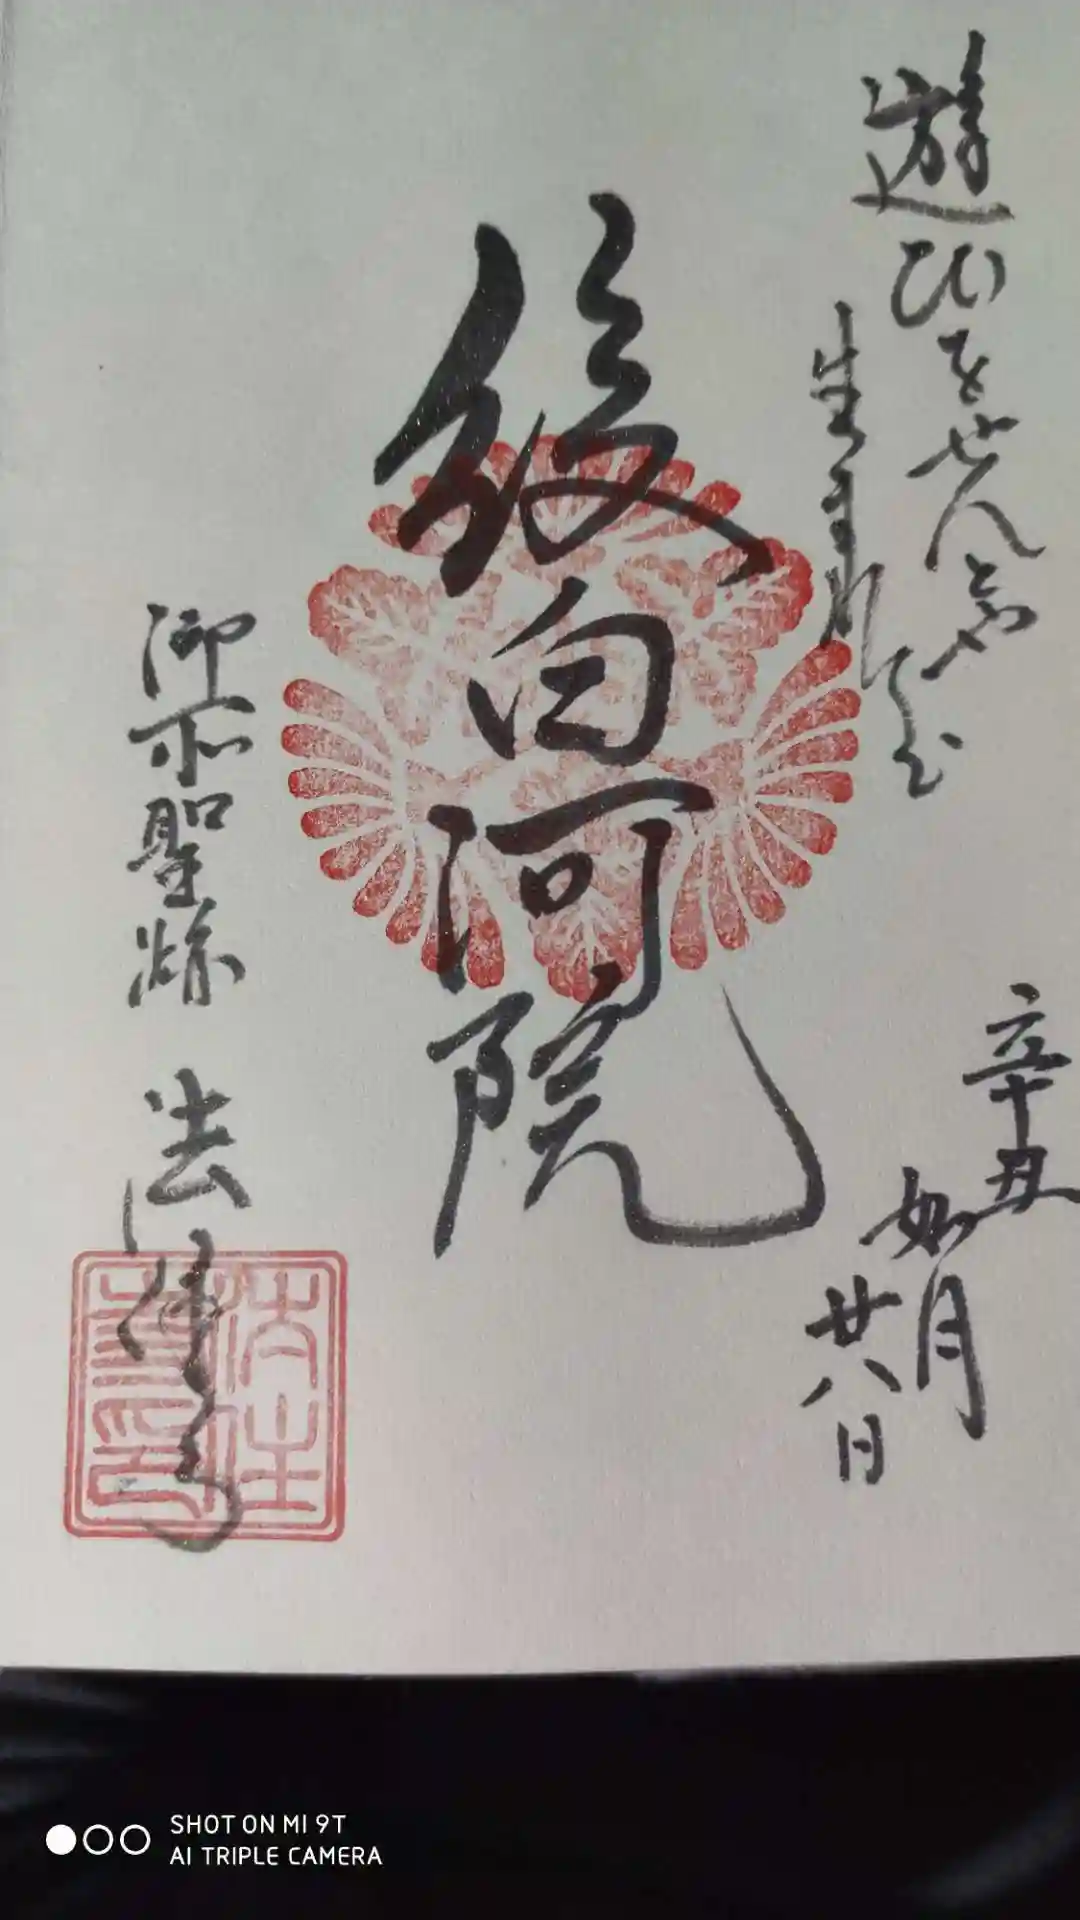 遊びをせんとや
生まれけむ
辛丑
如月
廿八日
後白河院
御所聖蹟 法住寺
法住
寺印
SHOT ON MI 9T
AI TRIPLE CAMERA